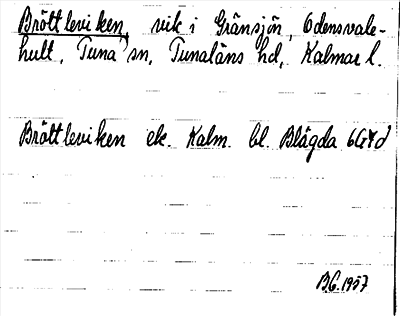 Bröttleviken, vik i Gränsjön, Odensvale-
hult, Tuna sn, Tunaläns hd, Kalmar l.
Bröttleviken ek. Kalm. bl. Blägda 6G7d
BG.1957